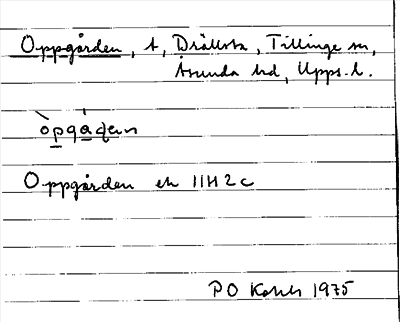 Oppgården, t, Drällsta, Tillinge sn,
Åsunda hd, Upps. l.
òpgáḍen
Oppgården ek 11H2c
PO 1975